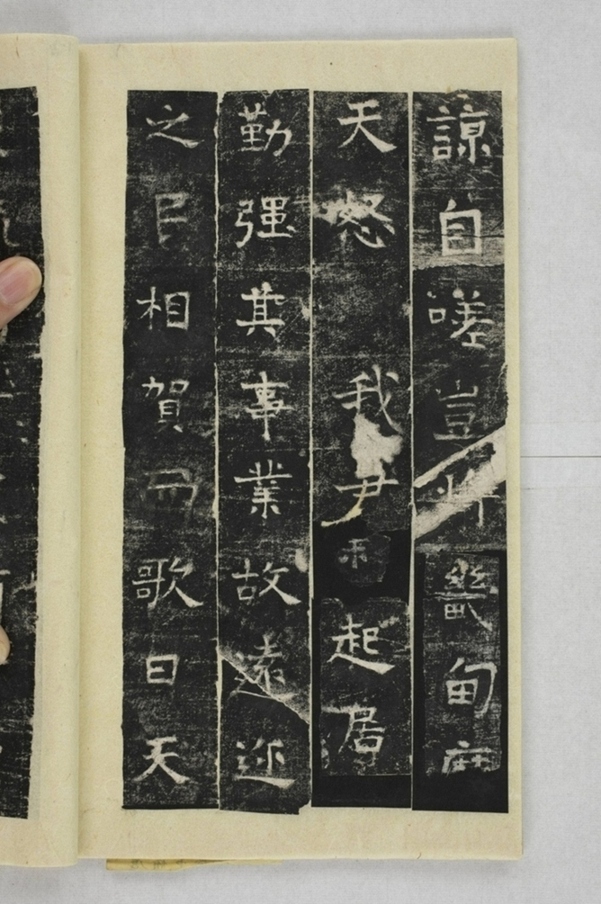 諒自嗟豈畿甸
天怒我尹起居
勤强其事業故遠迩
之民相賀而歌曰天